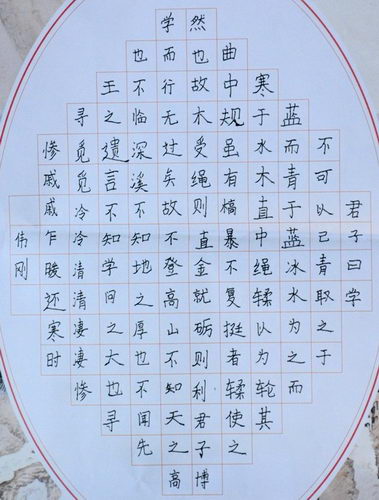 君子曰学
不可以已青取之于
蓝而青于蓝冰水为之而
寒于水木直中绳輮以为轮其
曲中规虽有槁暴不复挺者輮使之
然也故木受绳则直金就砺则利君子博
学而行无过矣故不登高山不知天之高
也不临深溪不知地之厚也不闻先
王之遗言不知学问之大也寻
寻觅觅冷冷清清凄凄惨
惨戚戚乍暖还寒时
伟刚